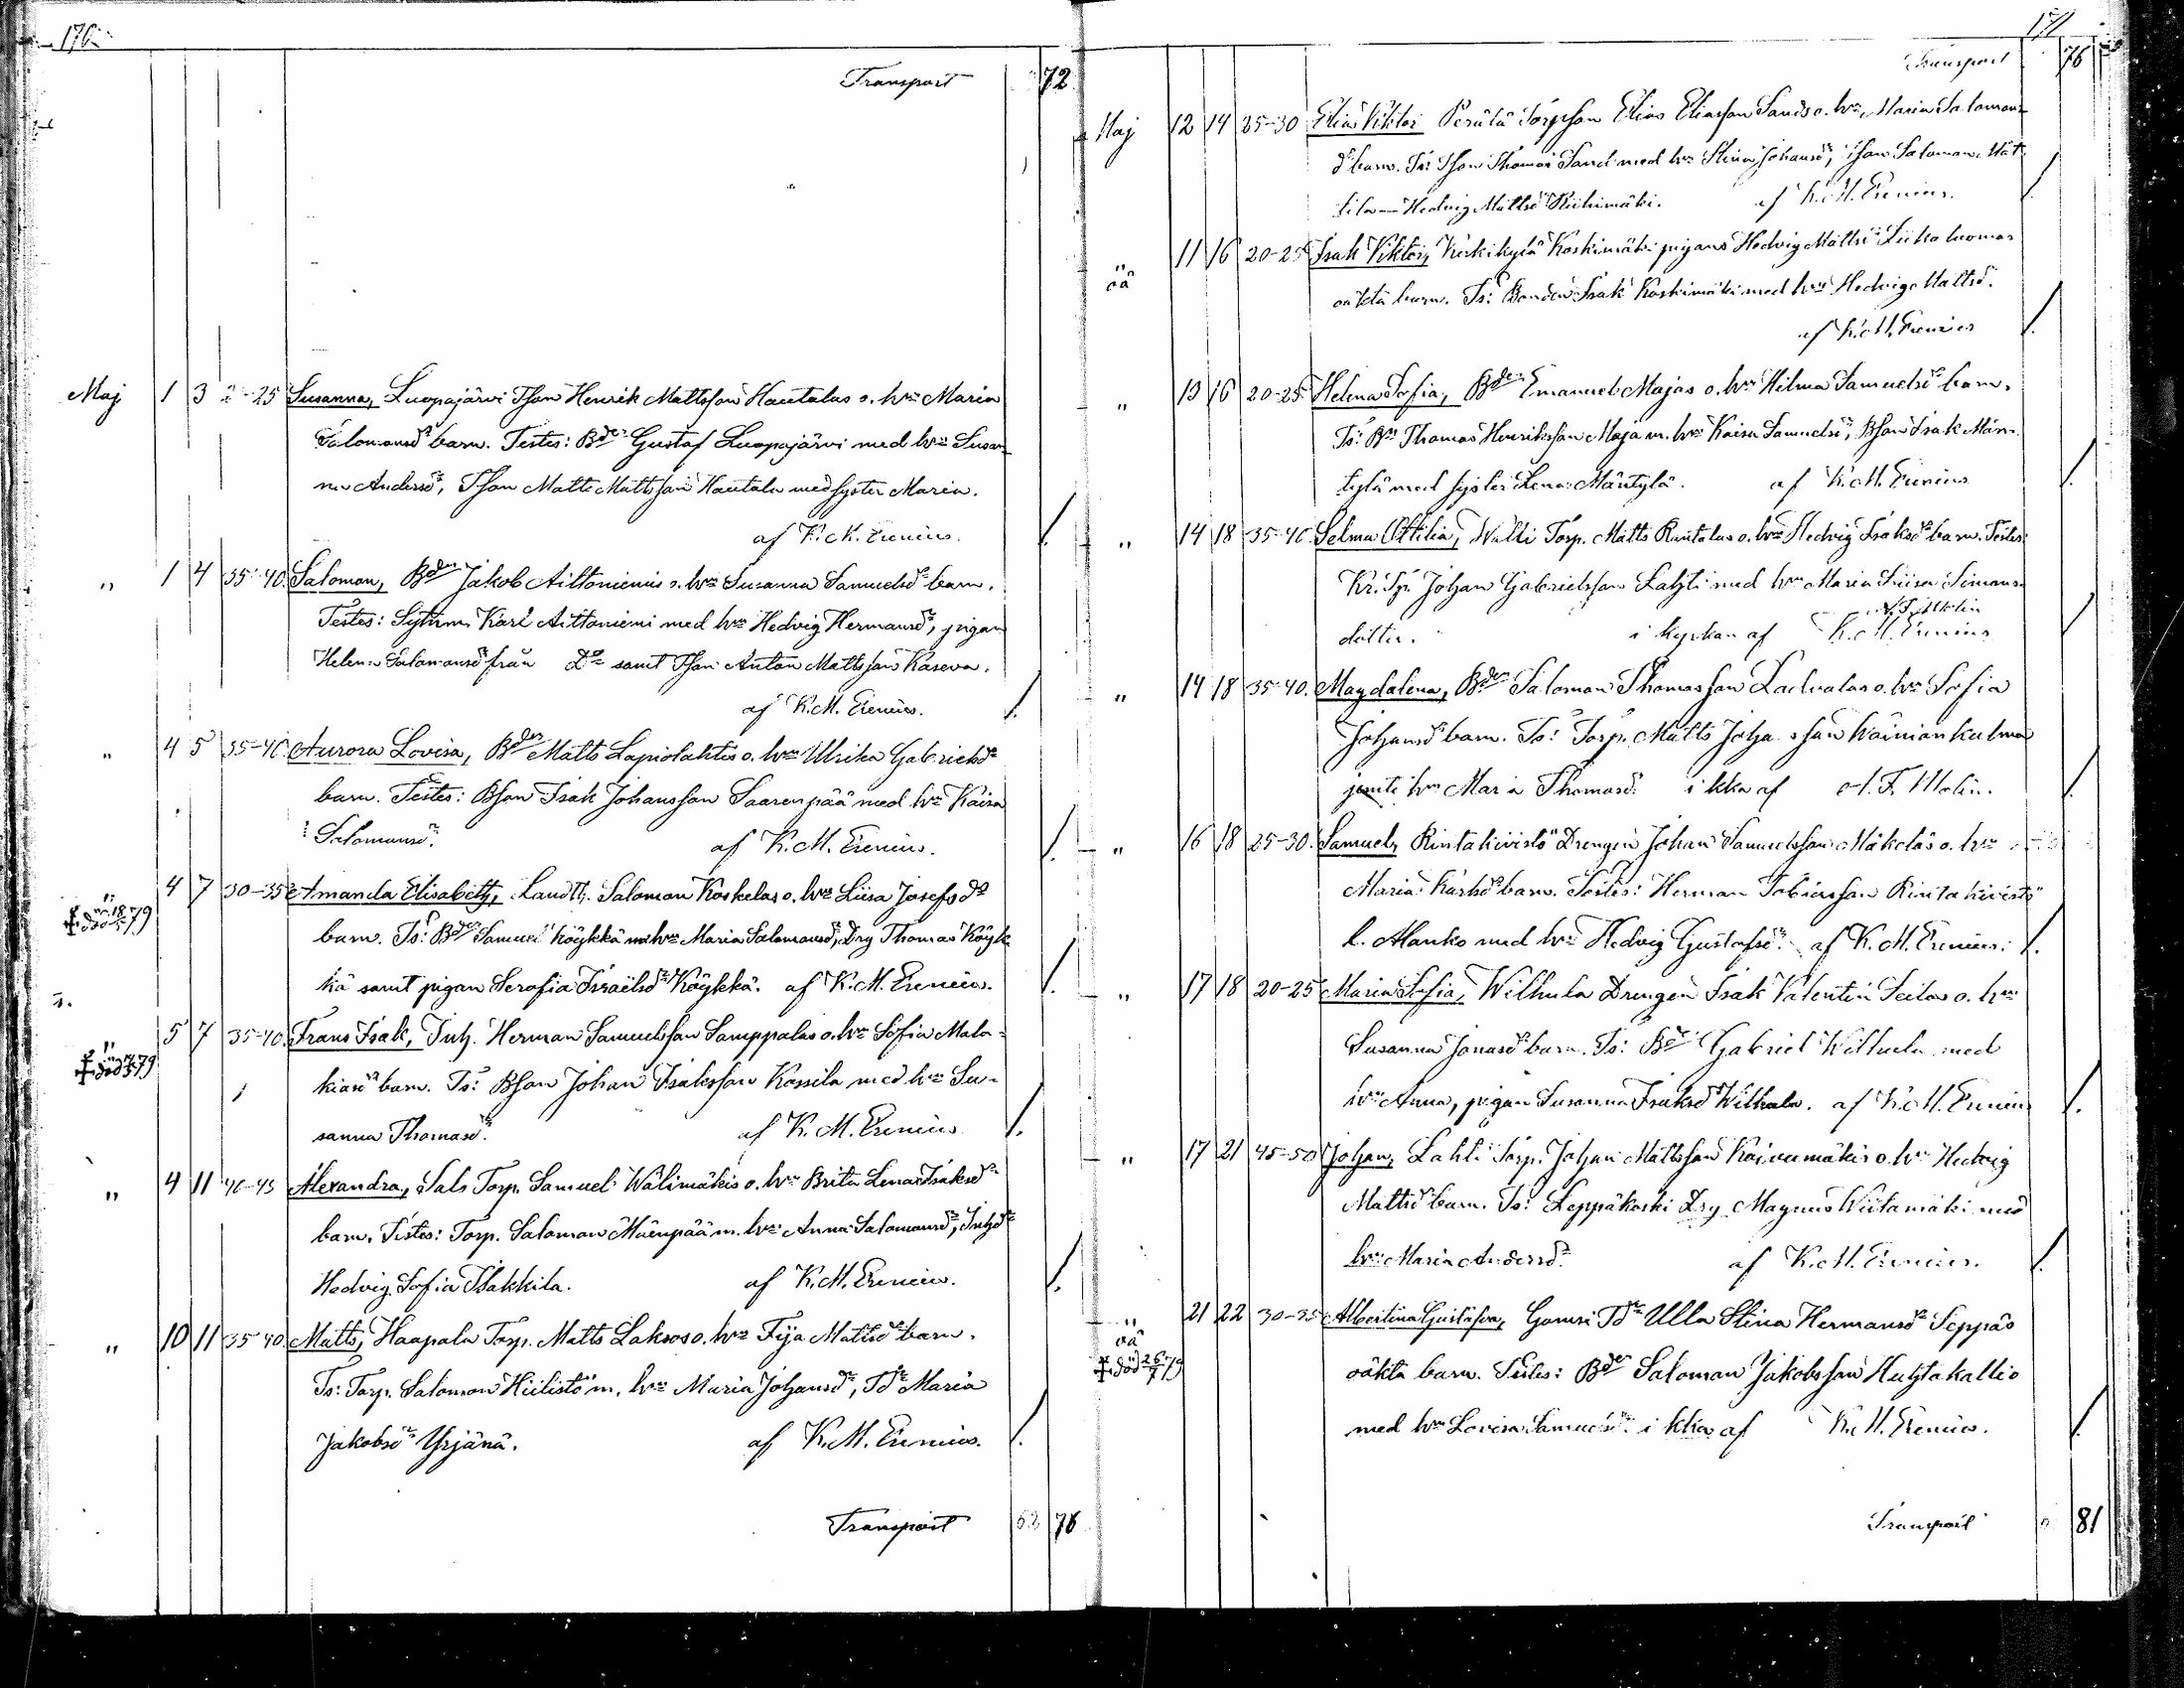 176
Transport 72
Maj 1 3 2-25 Susanna, Luopajärvi Tson Henrik Mattsson Hautalas o. hru Maria
Salomonsdr barn. Testes: Bden Gustaf Luopajärvi med hru Susan-
na Andersdr, Tson Matts Mattsson Hautala med syster Maria.
af K. M. Erenius.
" 1 4 35-40. Saloman, Bden Jakob Aittoniemis o. hru Susanna Samuelsdr barn.
Testes: Sytnm. Karl Aittoniemi med hru Hedvig Hermansdr, pigan
Helena Salomonsdr från Do samt Tson Anton Mattsson Kaseva.
af K. M. Erenius. /.
" 4 5 35-40. Aurora Lovisa, Bden Matts Lapiolahtis o. hru Ulrika Gabrielsdr
barn. Testes: Bson Isak Johansson Saarenpää med hru Kaisa
Salomonsdr. af K. M. Erenius. /.
" 4 7 30-35 Amanda Elisabeth, Landtb. Saloman Koskelas o. hru Liisa Josefsdr
† död 18/5 79
barn. Ts: Bden Samuel Köykkä m hru Maria Salomonsdr, Drg Thomas Köyk-
kä samt pigan Serafia Israelsdr Köykkä. af K. M. Erenius. /.
" 5 7 35-40. Frans Isak, Inh. Herman Samuelsson Samppalas o. hru Sofia Mala-
kiasdr barn. Ts: Bson Johan Isaksson Kassila med hru Su-
sanna Thomasdr. af K. M. Erenius /.
" 4 11 40-45 Alexandra, Sals Torp. Samuel Wälimäkis o. hru Brita Lena Isaksdr
barn. Testes: Torp. Saloman Mäenpää m. hru Anna Salomonsdr, Inhdr
Hedvig Sofia Isakkila. af K. M. Erenius. /.
" 10 11 35-40. Matts, Haapala Torp. Matts Laksos o. hru Fija Mattsdr barn.
Ts: Torp. Salomon Hiilistö m. hru Maria Johansdr, Tdr Maria
Jakobsdr Yrjänä. af K. M. Erenius. /.
Transport 76
171
Transport 76
Maj 12 14 25-30 Elias Viktor Perälä Torpson Elias Eliasson Sands o. hru Maria Salomons-
dr barn. Ts: Tson Thomas Sand med hru Stina Johansdr, Tson Saloman Mat-
tila — Hedvig Mattsdr Riihimäki. af K. M. Erenius. /.
" oä 11 16 20-25 Isak Viktor, Keskikylä Koskimäki pigans Hedvig Mattsdr Liikaluomas
oäkta barn. Ts: Bonden Isak Koskimäki med hru Hedvig Mattsdr.
af K. M. Erenius /.
" 13 16 20-25 Helena Sofia, Bden Emanuel Majas o. hru Hilma Samuelsdr barn.
Ts: Bn Thomas Henriksson Maja m. hru Kaisa Samuelsdr, Bson Isak Män-
tylä med syster Lena Mäntylä. af K. M. Erenius /.
" 14 18 35-40. Selma Ottilia, Walli Torp. Matts Rantalas o. hru Hedvig Isaksdr barn. Testes:
Kr. Tp. Johan Gabrielsson Lahti med hru Maria Liisa Simons-
dotter. i kyrkan af A. F. Molin K. M. Erenius /
" 14 18 35-40. Magdalena, Bden Saloman Thomasson Ladvalas o. hru Sofia
Johansdr barn. Ts: Torp. Matts Johansson Wäiniänkulma
jemte hru Maria Thomasdr. i kka af A. F. Molin. /.
" 16 18 25-30. Samuel, Rintakivistö Drengen Johan Samuelsson Mäkeläs o. hru
Maria Karlsdr barn. Testes: Herman Tobiasson Rintakivistö
l. Manko med hru Hedvig Gustafsdr. af K. M. Erenius. /.
" 17 18 20-25 Maria Sofia, Wilhula Drengen Isak Valentin Seilas o. hru
Susanna Jonasdr barn. Ts: Bden Gabriel Wilhula med
hru Anna, pigan Susanna Isaksdr Wilhula. af K. M. Erenius /.
" 17 21 45-50 Johan, Lahti Torp. Johan Mattsson Kaivumäkis o. hru Hedvig
Mattsdr barn. Ts: Leppäkoski Drg Magnus Wiitamäki med
hru Maria Andersdr. af K. M. Erenius. /.
" oä 21 22 30-35 Albertina Gustafva, Gamri Tdr Ulla Stina Hermansdr Seppäs
† död 26/7 79
oäkta barn. Testes: Bden Saloman Jakobsson Huhtakallio
med hru Lovisa Samuelsdr. i kka af K. M. Erenius. /.
Transport 81